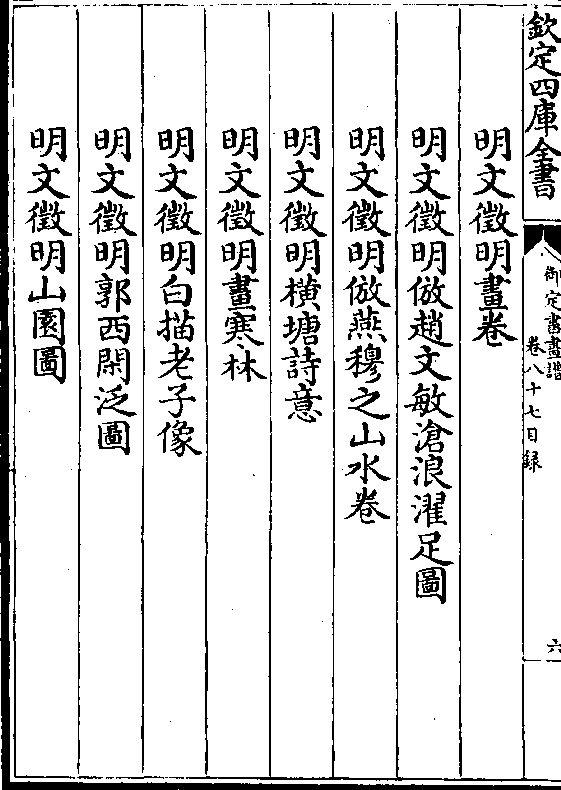 欽定四庫全書
御定書畫譜
卷八十七目録
六
明文徵明畫卷
明文徵明倣趙文敏滄浪濯足圖
明文徵明倣燕穆之山水卷
明文徵明橫塘詩意
明文徵明畫寒林
明文徵明白描老子像
明文徵明郭西閑泛圖
明文徵明山園圖